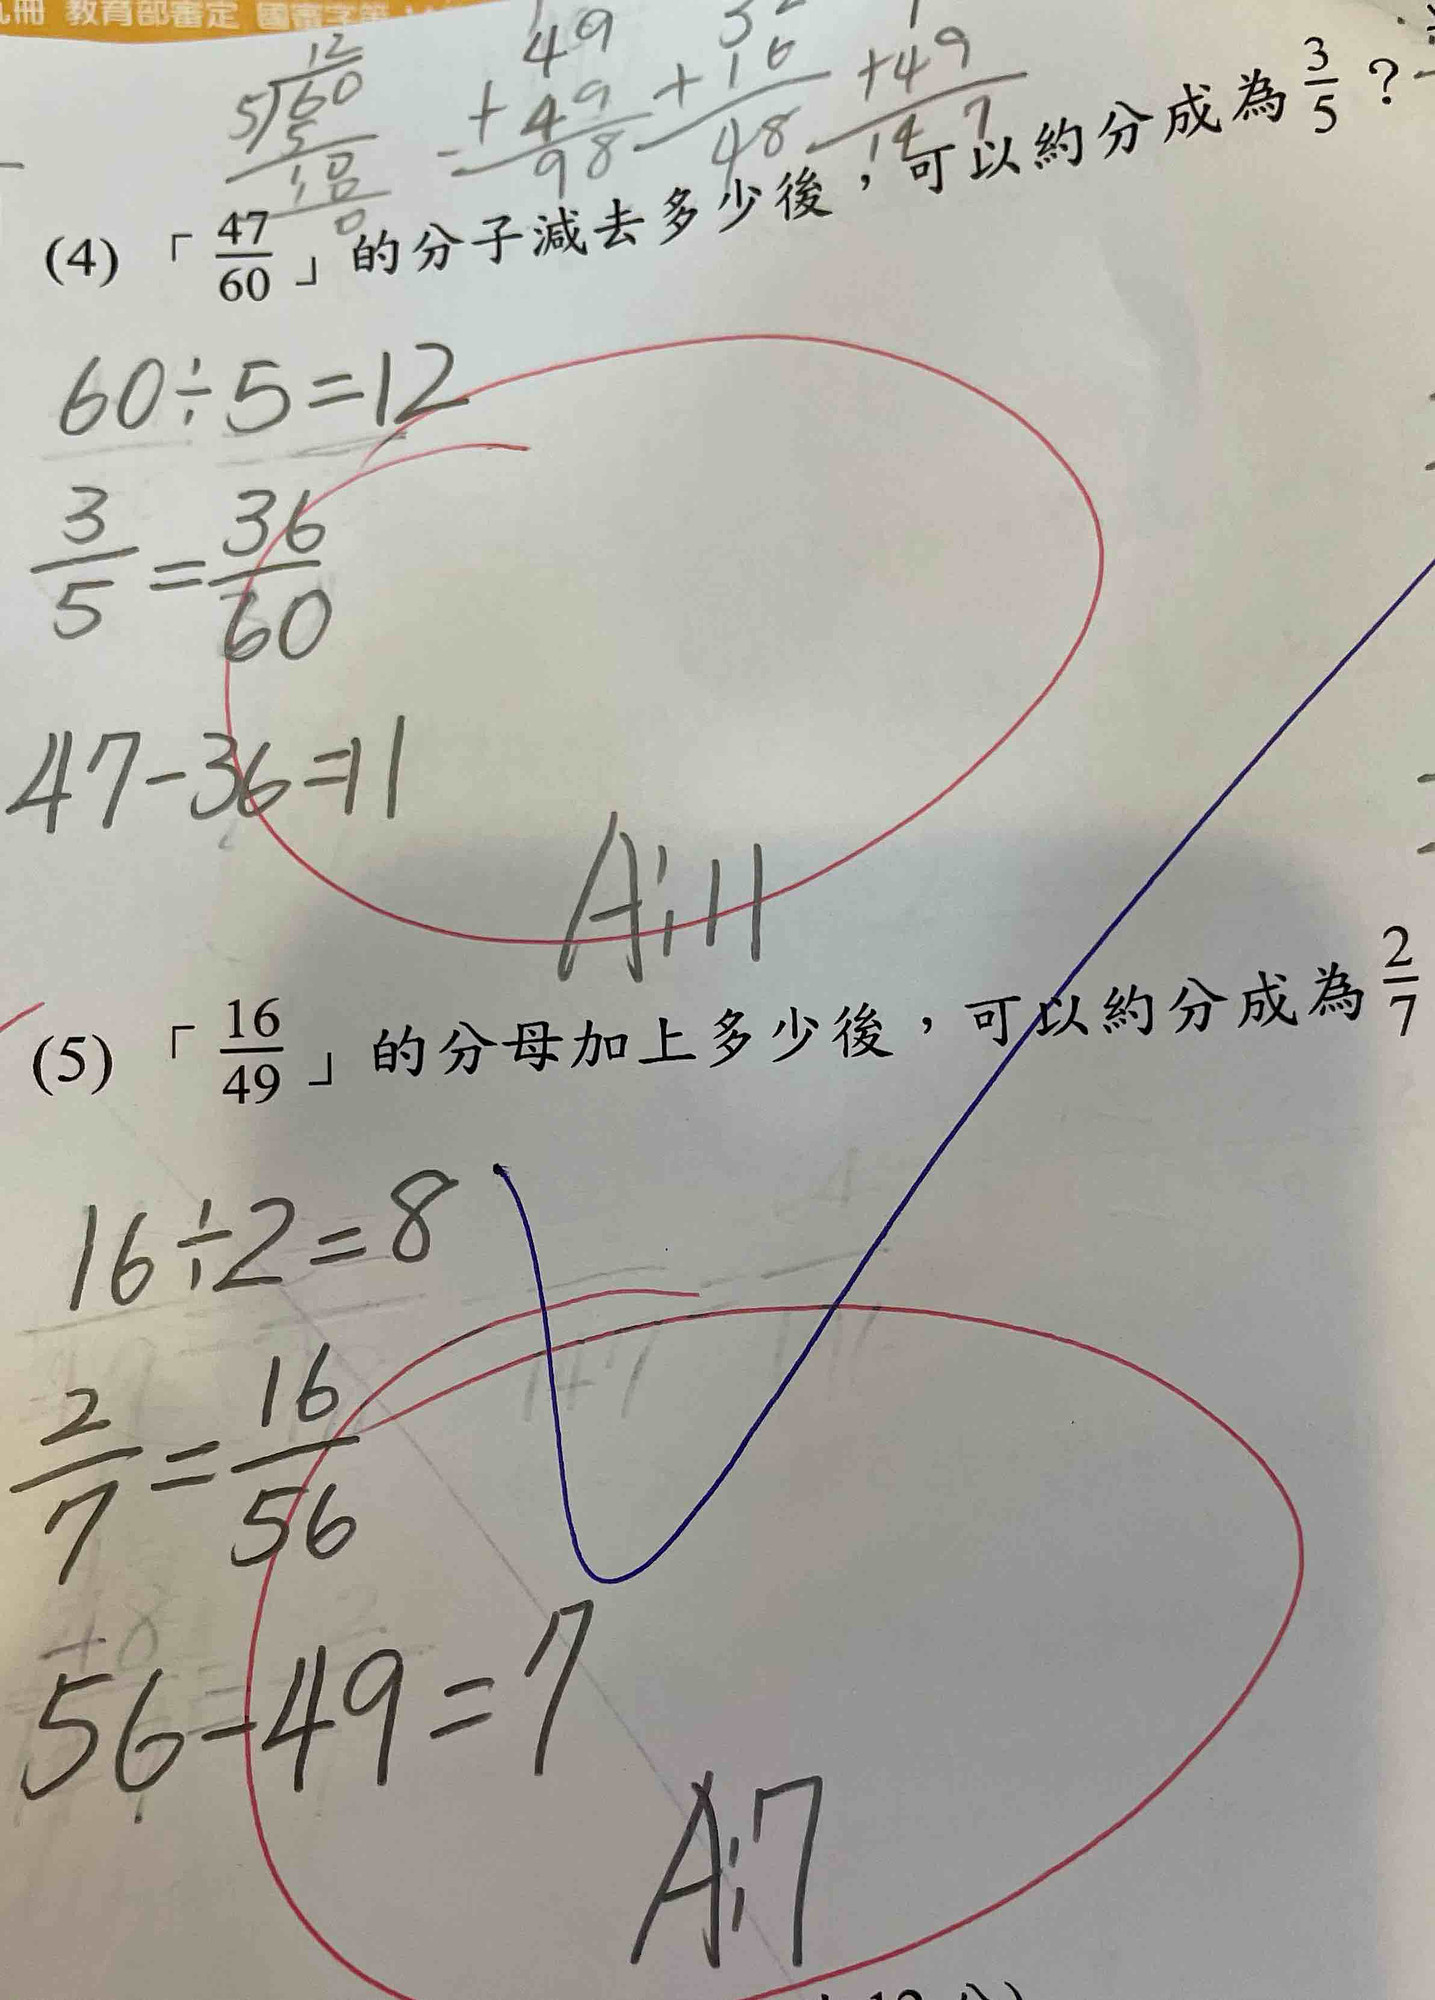 冊 教育部審定
12
5)60
5
10
10
0
49
+49
98
32
+16
48
1
+49
147
(4) 「47/60」的分子減去多少後，可以約分成為3/5？
60÷5=12
3/5=36/60
47-36=11
A:11
(5) 「16/49」的分母加上多少後，可以約分成為2/7
16÷2=8
2/7=16/56
56-49=7
A:7